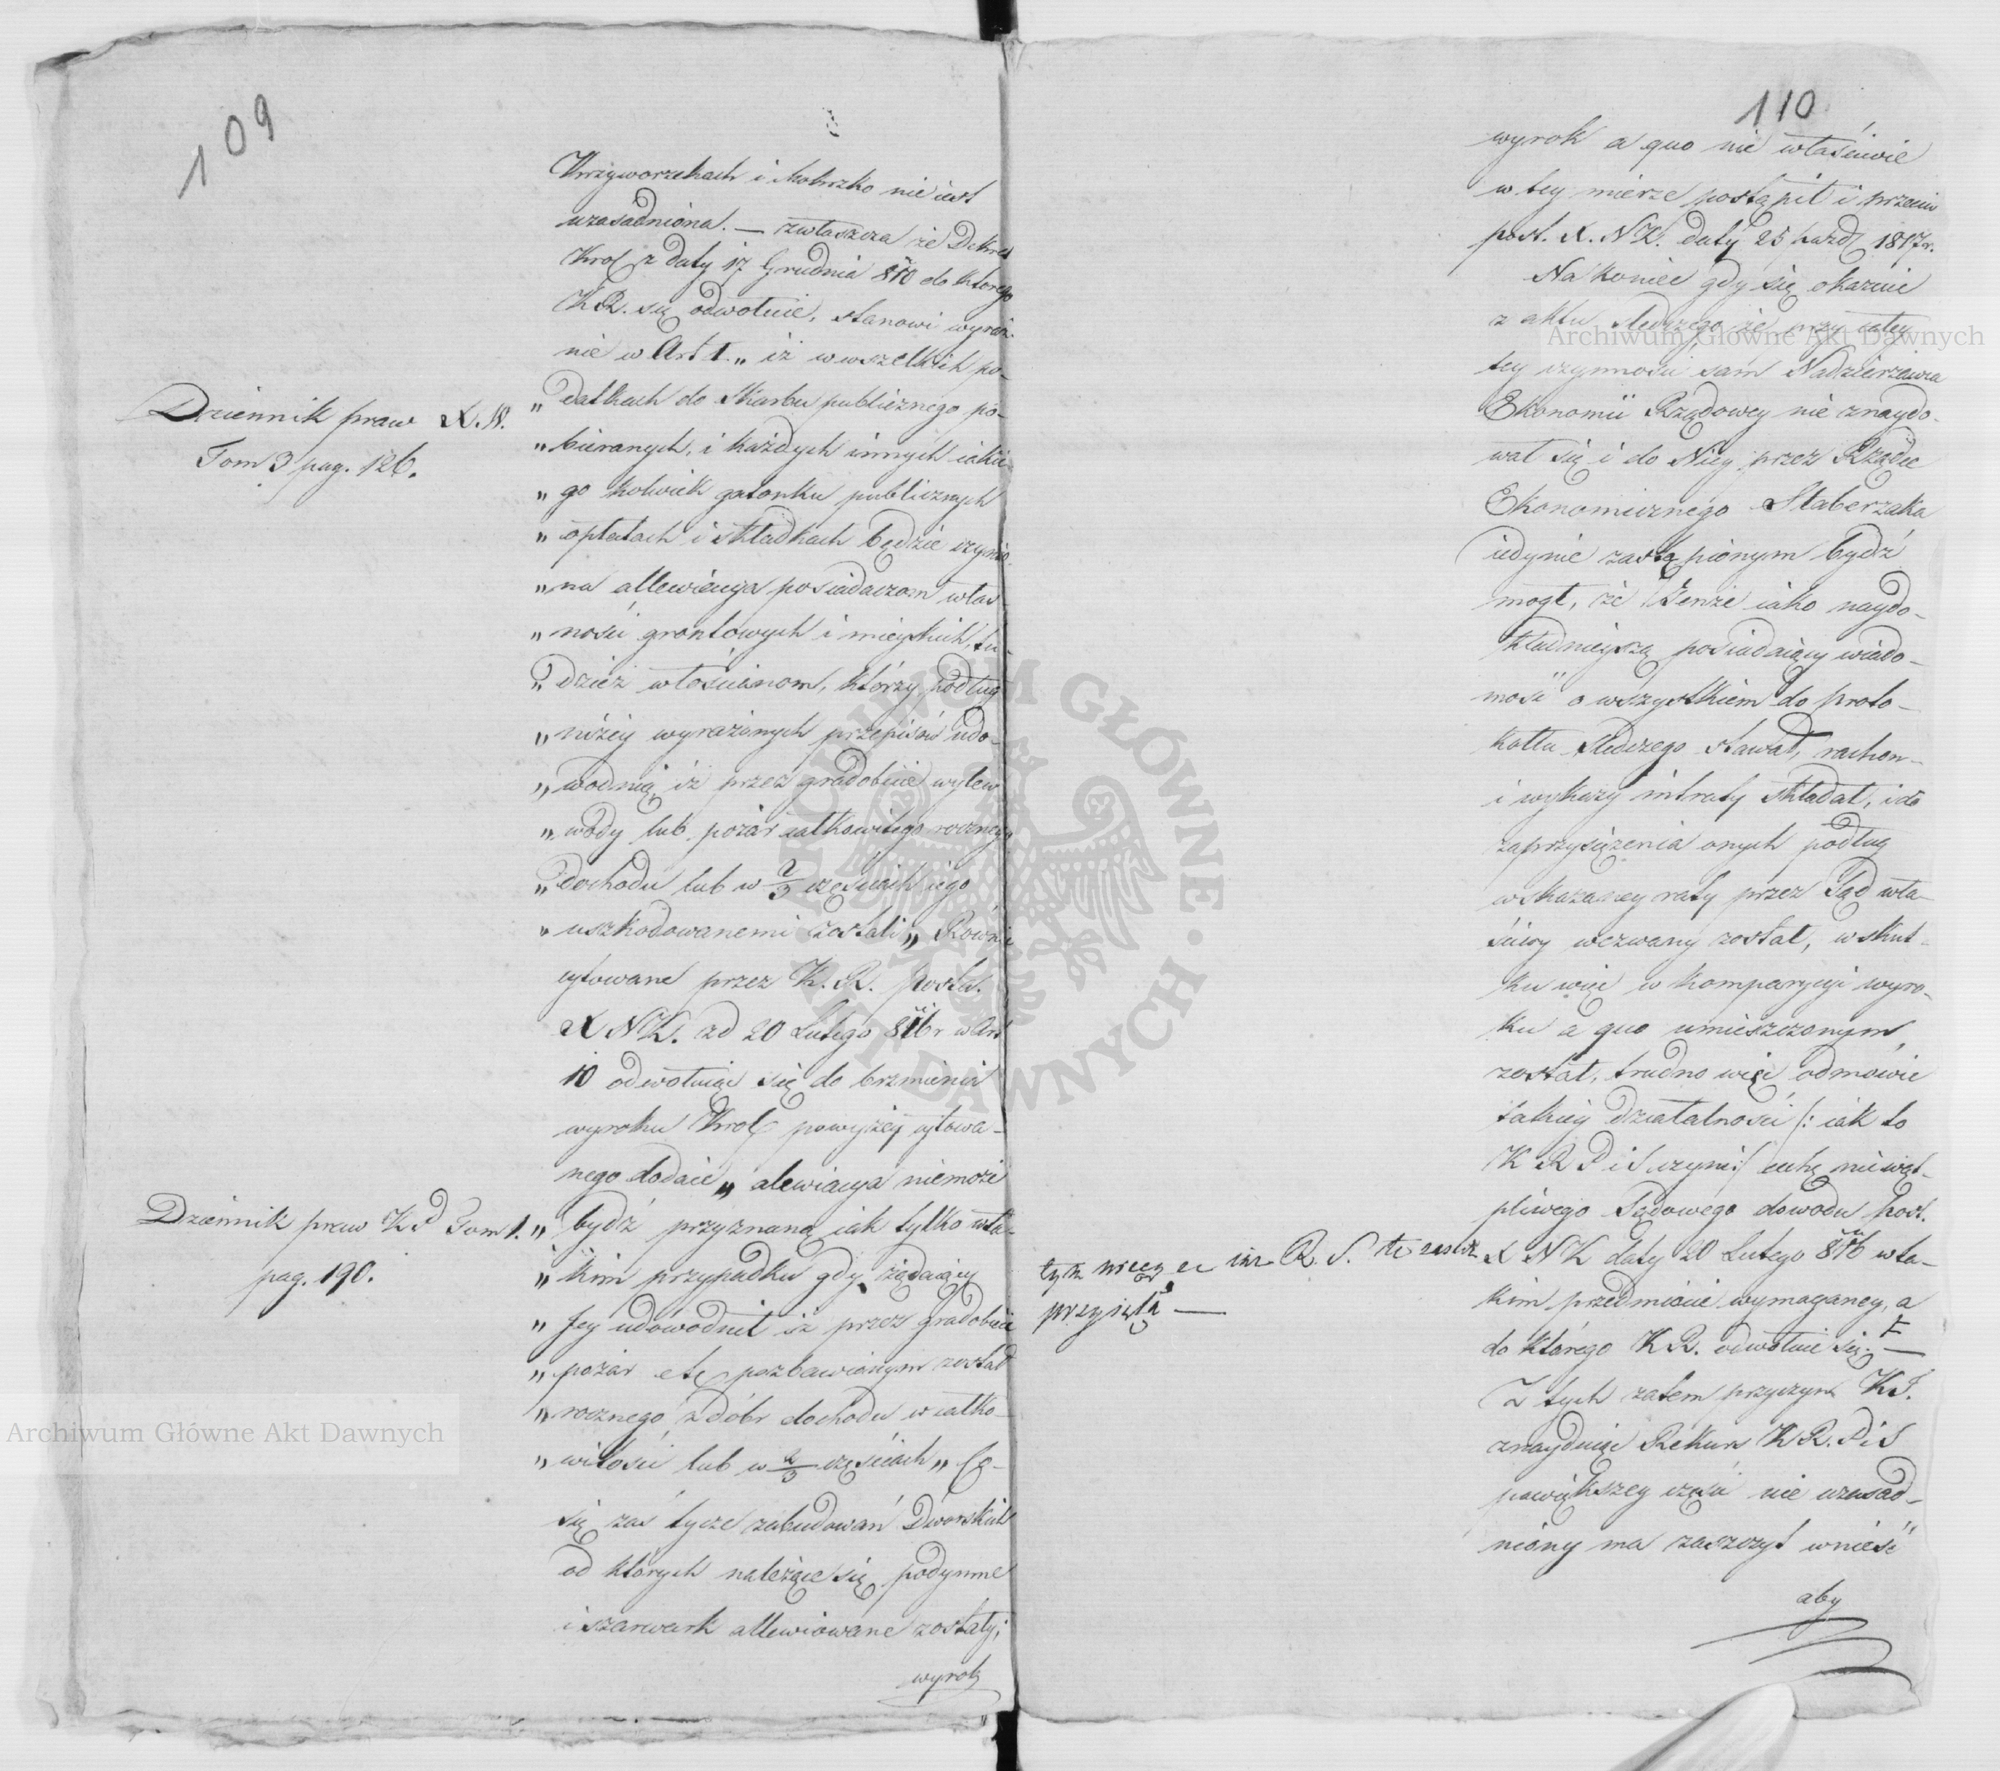 109
Krzyworzekach i Mokrsko nie iest
uzasadniona. — zwłaszcza że Dekret
Krol z daty 17 Grudnia 810 do ktorego
K R. się odwołuie, stanowi wyraź-
nie w Art 1. „ iż w wszelkich po-
„ datkach do Skarbu publicznego po-
„ bieranych, i każdych innych iakie
„ go kolwiek gatonku publicznych
„ opłatach i składkach będzie czynio
„ na allewiacya posiadaczom włas
„ ności grontowych i mieyskich, tu-
„ dzież włościanom, którzy podług
„ niżey wyrażonych przepisów udo-
„ wodnią iż przez gradobicie wylew
„ wody lub pożar całkowitego rocznego
„ dochodu lub w 2/3 częściach iego
„ uszkodowanemi zostali „ Rownie
cytowane przez K. R. Posta.
X N K. zd 20 Lutego 816 r w Art
10 odwołuiąc się do brzmienia
wyroku Krol powyżey cytowa-
nego dodaie „ alewiacya niemoże
„ bydź przyznaną iak tylko w ta-
„ kim przypadku gdy żądaiący
„ Jey udowodnił iż przez gradobicie
„ pożar etc pozbawionym został
„ rocznego z dóbr dochodu w całko-
„ witości lub w 2/3 częściach „ Co-
się zaś tycze zabudowań Dworskich
od których należące się podymne
i szarwark allewiowane zostały;
wyrok
Dziennik praw X. W.
Tom 3 pag. 126.
Dziennik praw K P Tom 1.
pag. 190.
110
wyrok a quo nie właściwie
w tey mierze postąpił i przeciw
post. X. N K. daty 25 paźd 1817 r.
Na koniec gdy się okazuie
z aktu śledczego że przy całey
tey czynności sam Naddzierżawca
Ekonomii Rządowey nie znaydo-
wał się i do Niey przez Rządcę
Ekonomicznego Slaberzaka
iedynie zastąpionym bydź
mogł, że Tenże iako naydo-
kładnieyszą posiadaiący wiado-
mość o wszystkiem do proto-
kołu śledczego stawał, rachon-
i wykazy intraty składał, i do
zaprzysiężenia onych podług
wskazaney raty przez Sąd wła-
ściwy wezwany został, w skut-
ku więc w komparycyi wyro-
ku a quo umieszczonym
został, trudno więc odmowie
takiey działalności /: iak to
K R P i S czyni :/ cechę niewąt-
pliwego Sądowego dowodu Post.
X N K daty 20 Lutego 816 w ta-
kim przedmiocie wymaganey, a
do którego K R. odwołuie się. —
Z tych zatem przyczyn K J.
znayduiąc Rekurs K R. P i S
powiększey części nie uzasad-
niony ma zaszczyt wnieść
aby
przyięła —
Archiwum Główne Akt Dawnych
Archiwum Główne Akt Dawnych
ARCHIWUM GŁÓWNE · AKT DAWNYCH ·